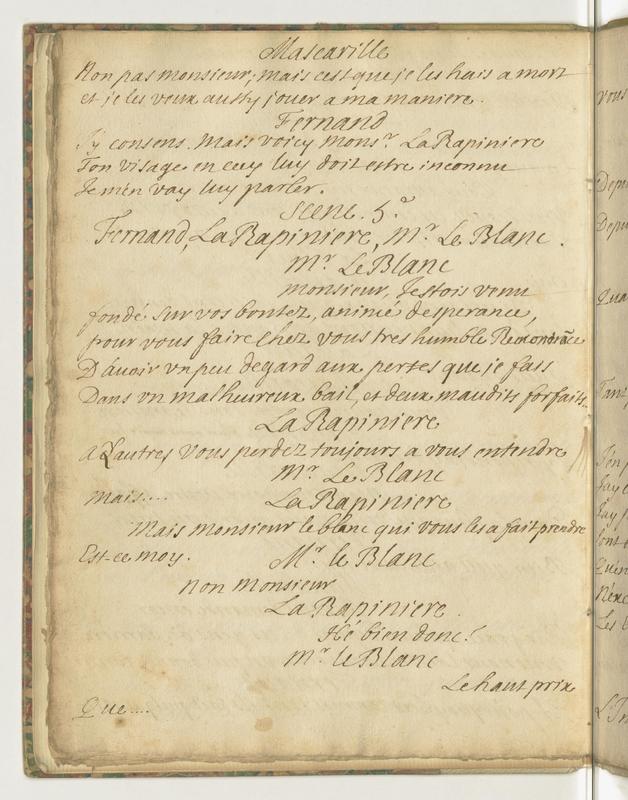 Mascarille
Non pas monsieur, mais c'est que je les hais a mort
et je les veux aussy jouer a ma maniere.
Fernand
J'y consens. Mais voicy monsr. La Rapiniere
Ton visage en cecy luy doit estre inconnu
Je m'en vay luy parler.
Scene. 5.e
Fernand, La Rapiniere, Mr. Le Blanc.
Mr. Le Blanc
monsieur, Jestois venu
fondé sur vos bontez, animé desperance,
pour vous faire chez vous tres humble Remontrãce
D'avoir un peu degard aux pertes que je fais
Dans un malheureux bail, et deux maudits forfaits.
La Rapiniere
a Lautres vous perdez toujours a vous entendre
Mr. Le Blanc
mais....
La Rapiniere
Mais monsieur le blanc qui vous les a fait prendre
Est-ce moy.
Mr. le Blanc
non monsieur
La Rapiniere.
Hé bien donc?
Mr. le Blanc
Le haut prix
Que....
vous
Depu
Depu
Qua
Tant